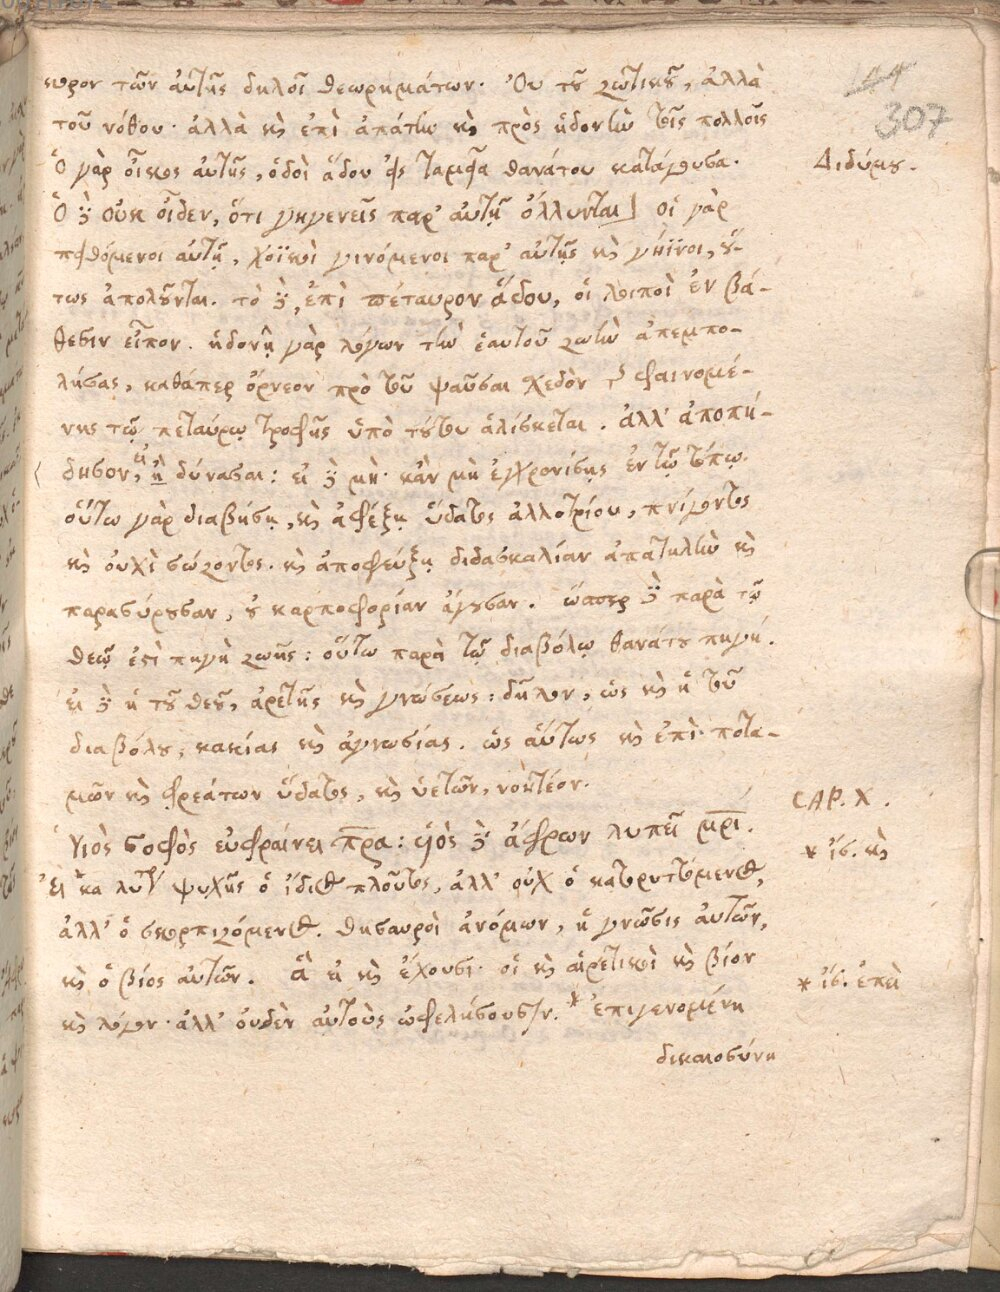 44
307
κυρον τῶν αὐτῆς δηλοῖ θεωρημάτων. Οὐ τοῦ ζωτικοῦ, ἀλλὰ
τοῦ νόθου· ἀλλὰ καὶ ἐπὶ ἀπάτην καὶ πρὸς ἡδονὴν τοῖς πολλοῖς
Ὁ γὰρ οἶκος αὐτῆς, ὁδοὶ ᾅδου εἰς ταμεῖα θανάτου κατάγουσα.
Διδύμου.
Ὁ δὲ οὐκ οἶδεν, ὅτι γηγενεῖς παρ' αὐτῇ ὄλλυνται] οἱ γὰρ
πειθόμενοι αὐτῇ, χοϊκοὶ γινόμενοι παρ' αὐτῆς καὶ γήϊνοι, οὕ-
τως ἀπολοῦνται. τὸ δὲ, ἐπὶ πέταυρον ᾅδου, οἱ λοιποὶ ἐν βά-
θεσιν εἶπον. ἡδονῇ γὰρ λόγων τὴν ἑαυτοῦ ζωὴν ἀπεμπο-
λήσας, καθάπερ ὄρνεον πρὸ τοῦ ψαῦσαι σχεδὸν τῆς φαινομέ-
νης τῷ πεταύρῳ τροφῆς ὑπὸ τούτου ἁλίσκεται. ἀλλ' ἀποπή-
δησον, εἰ ᾗ δύνασαι: εἰ δὲ μὴ· κἂν μὴ ἐγχρονίσῃς ἐν τῷ τόπῳ.
οὕτω γὰρ διαβήσῃ, καὶ ἀφέξῃ ὕδατος ἀλλοτρίου, πνίγοντος
καὶ οὐχὶ σώζοντος. καὶ ἀποφεύξῃ διδασκαλίαν ἀπατηλὴν καὶ
παρασύρουσαν, οὐ καρποφορίαν ἄγουσαν. ὥσπερ δὲ παρὰ τῷ
θεῷ ἐστὶ πηγὴ ζωῆς: οὕτω παρὰ τῷ διαβόλῳ θανάτου πηγή.
εἰ δὲ ἡ τοῦ θεοῦ, ἀρετῆς καὶ γνώσεως: δῆλον, ὡς καὶ ἡ τοῦ
διαβόλου, κακίας καὶ ἀγνωσίας. ὡς αὕτως καὶ ἐπὶ ποτα-
μῶν καὶ φρεάτων ὕδατος, καὶ ὑετῶν, νοητέον.
CAP. X.
Υἱὸς σοφὸς εὐφραίνει πρα: υἱὸς δὲ ἄφρων λυπεῖ μρι.
* ἴσ. καὶ
Εἰ κα λυτ ψυχῆς ὁ ἴδιος πλοῦτος, ἀλλ' οὐχ ὁ κατορυττόμενος,
ἀλλ' ὁ σκορπιζόμενος. θησαυροὶ ἀνόμων, ἡ γνῶσις αὐτῶν,
καὶ ὁ βίος αὐτῶν. ἃ εἰ καὶ ἔχουσι· οἱ καὶ αἱρετικοὶ καὶ βίον
* ἴσ. ἐπεὶ
καὶ λόγον· ἀλλ' οὐδὲν αὐτοὺς ὠφελήσουσιν. * ἐπιγενομένη
δικαιοσύνη